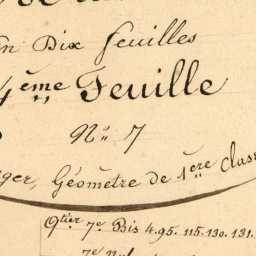 En Dix feuilles
4ème Feuille
No 7
Géomètre de 1ère class
Qtier 7e Bis 4.95. 115.130.131.
7e